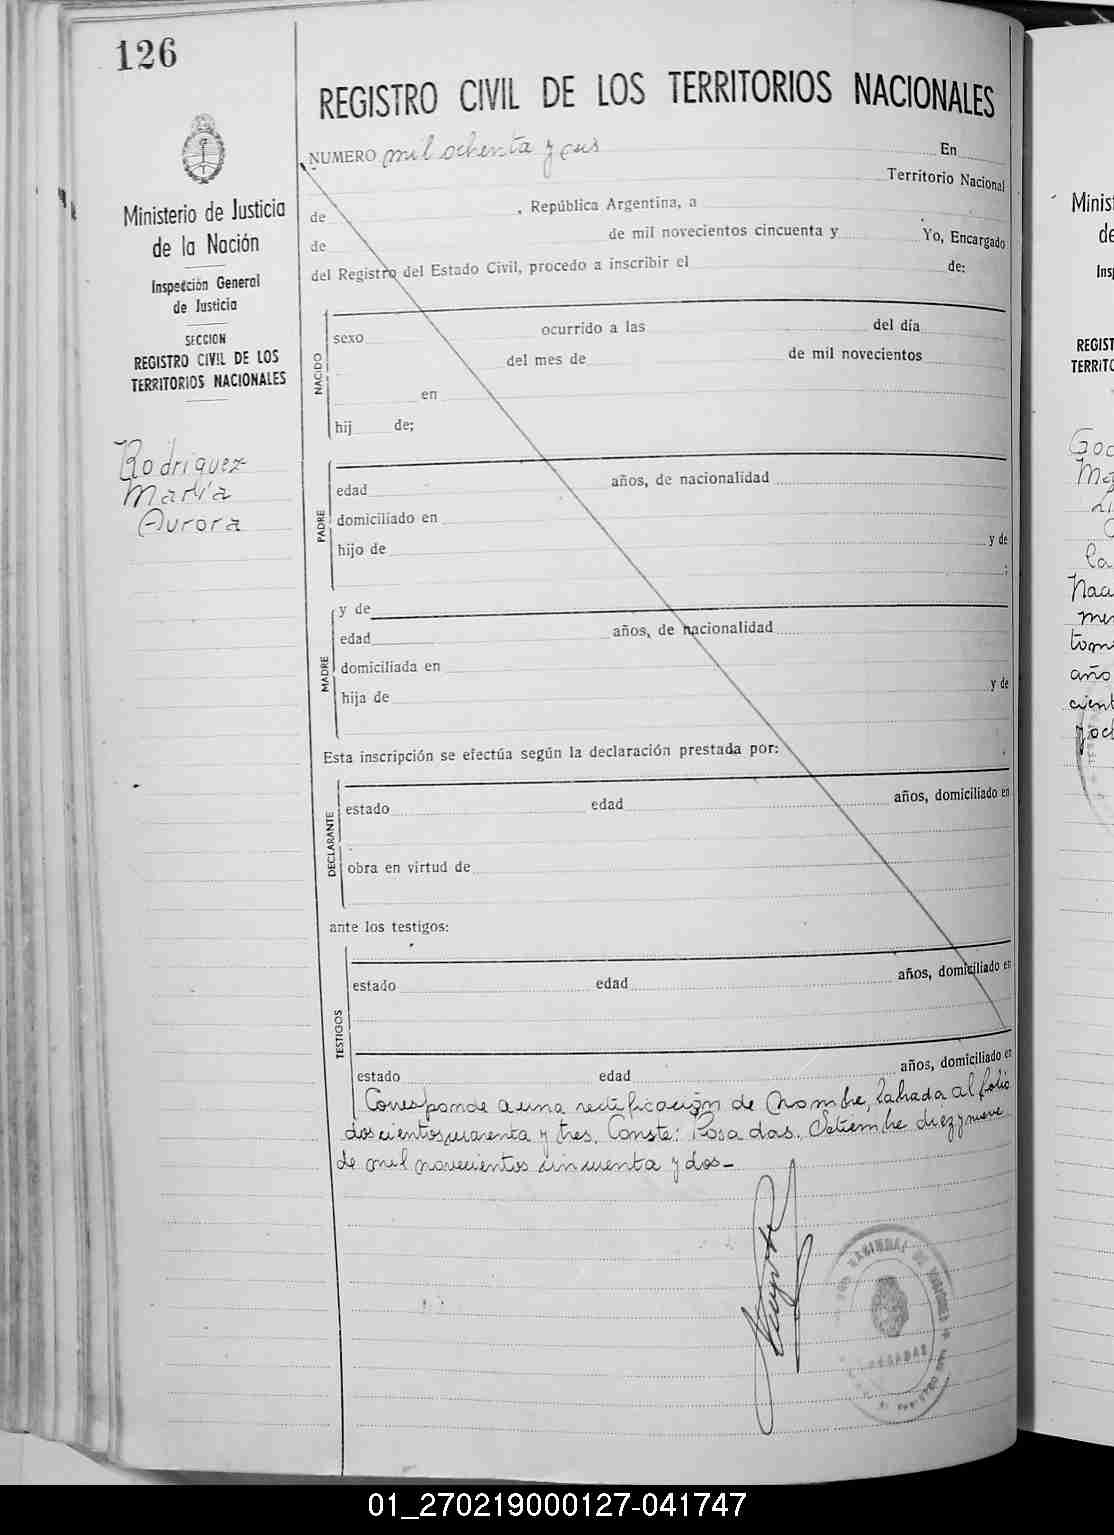 126
REGISTRO CIVIL DE LOS TERRITORIOS NACIONALES
NUMERO mil ochenta y seis En
Territorio Nacional
de , República Argentina, a
de de mil novecientos cincuenta y Yo, Encargado
del Registro del Estado Civil, procedo a inscribir el de:
Ministerio de Justicia
de la Nación
Inspección General
de Justicia
SECCION
REGISTRO CIVIL DE LOS
TERRITORIOS NACIONALES
Rodriguez
Maria
Aurora
NACIDO
sexo ocurrido a las del día
del mes de de mil novecientos
en
hij de;
PADRE
edad años, de nacionalidad
domiciliado en
hijo de y de
;
MADRE
y de
edad años, de nacionalidad
domiciliada en
hija de y de
Esta inscripción se efectúa según la declaración prestada por:
DECLARANTE
estado edad años, domiciliado en
obra en virtud de
ante los testigos:
TESTIGOS
estado edad años, domiciliado en
estado edad años, domiciliado en
Corresponde a una rectificación de nombre, labrada al folio
doscientos cuarenta y tres. Conste: Posadas, Setiembre diez y nueve
de mil novecientos cincuenta y dos-
POSADAS
Minist
de
Insp
REGIST
TERRITO
la
Naci
año
cient
01_270219000127-041747